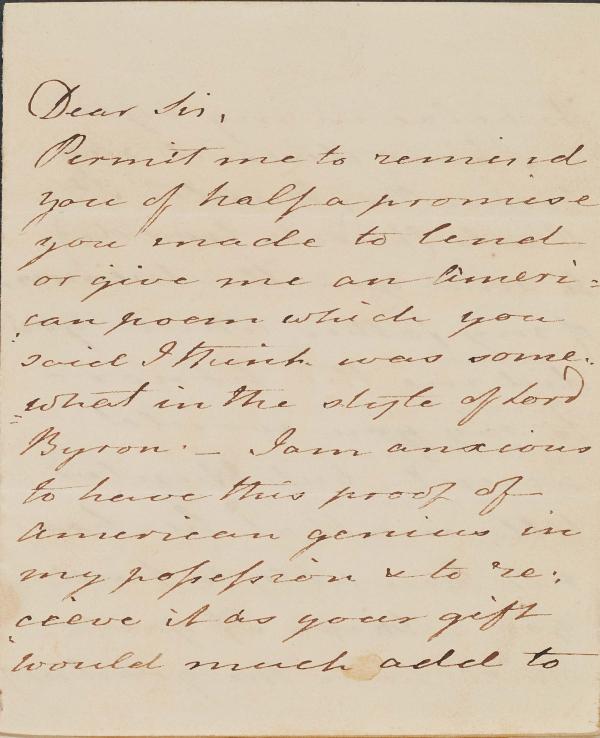 Dear Sir,
Permit me to remind
you of half a promise
you made to lend
or give me an Ameri=
can poem which you
said I think was some=
what in the style of Lord
Byron. — I am anxious
to have this proof of
American genius in
my possession & to re:
cieve it as your gift
would much add to